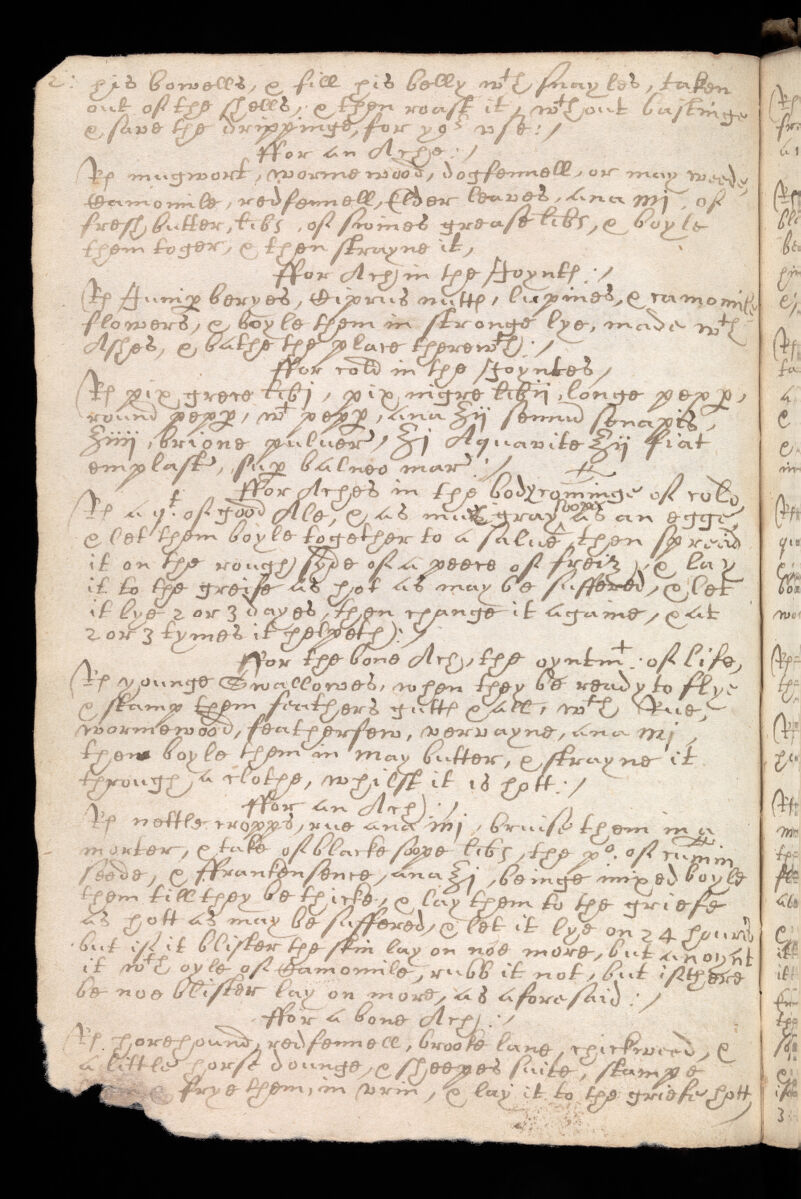 2: his bowells, & fill his belly wth snayles, taken
out of the shells, & then roast it, wthout bastinge
& save the drippinge, for yor vse:/
ffor an Ache:/
Rx mugwort, wormewood, dogfennell, or may weede,
Camomile, redfennell, Elder leaves, ana mj, of
fresh butter, libs, of swines grease libs, & boyle
them toger, & then strayne it,
ffor Ach in the Joynts:/
Rx Junip beryes, Ciprus nutts, lupines, & camomile
flowers, & boyle them in stronge lye, made wth
Ashes, & bathe the place therewth:/
ffor cold in the Joyntes,
Rx pix grece libj, pix nigre libij, longe pepp,
round pepp, wt pepp, ana ʒij semnd senapis,
ʒiiij, brione pulver, ʒj Aquavite ʒij fiat
emplastr, sup balneo mar:/
ffor Aches in the body cominge of cold,
Rx a qt. of good Ale, & as much gray sope as an egge,
& let them boyle together to a salue, then spread
it on the rough syde of a peece of freiz, & lay
it to the greife as hot as may be suffered, & let
it lye 2 or 3 dayes, then change it againe, & at
2 or 3 tymes it helpeth:/
ffor the bone Ach, the oyntmt: of life,
Rx younge Swallowes, when they be ready to flye
& stamp them feathers gutts & all, wth Rue,
wormewood, featherfew, vervayne, ana mj,
then boyle them in may butter, & strayne it
through a clothe, whilst it is hott:/
ffor an Ach:/
Rx nettle cropps, rue ana mj, bruise them in a
morter, & take of blacke sope libs, the po. of cumin
seede, & ffrankensence, ana ʒj, beinge mixed boyle
them till they be thicke, & lay them to the griefe
as hott as may be suffered, & let it lye on 24 hours
but if it blister the skin lay on noe more, but anoynt
it wth oyle of Camomile, rubb it not, but if there
be noe blister lay on more, as aforesaid:/
ffor a bone Ach:/
Rx horehound, redfennell, brooke lane, chickweed, &
a little horse dounge, & sheepes suite, stampe
& frye them, in vrin, & lay it to the griefe hott,